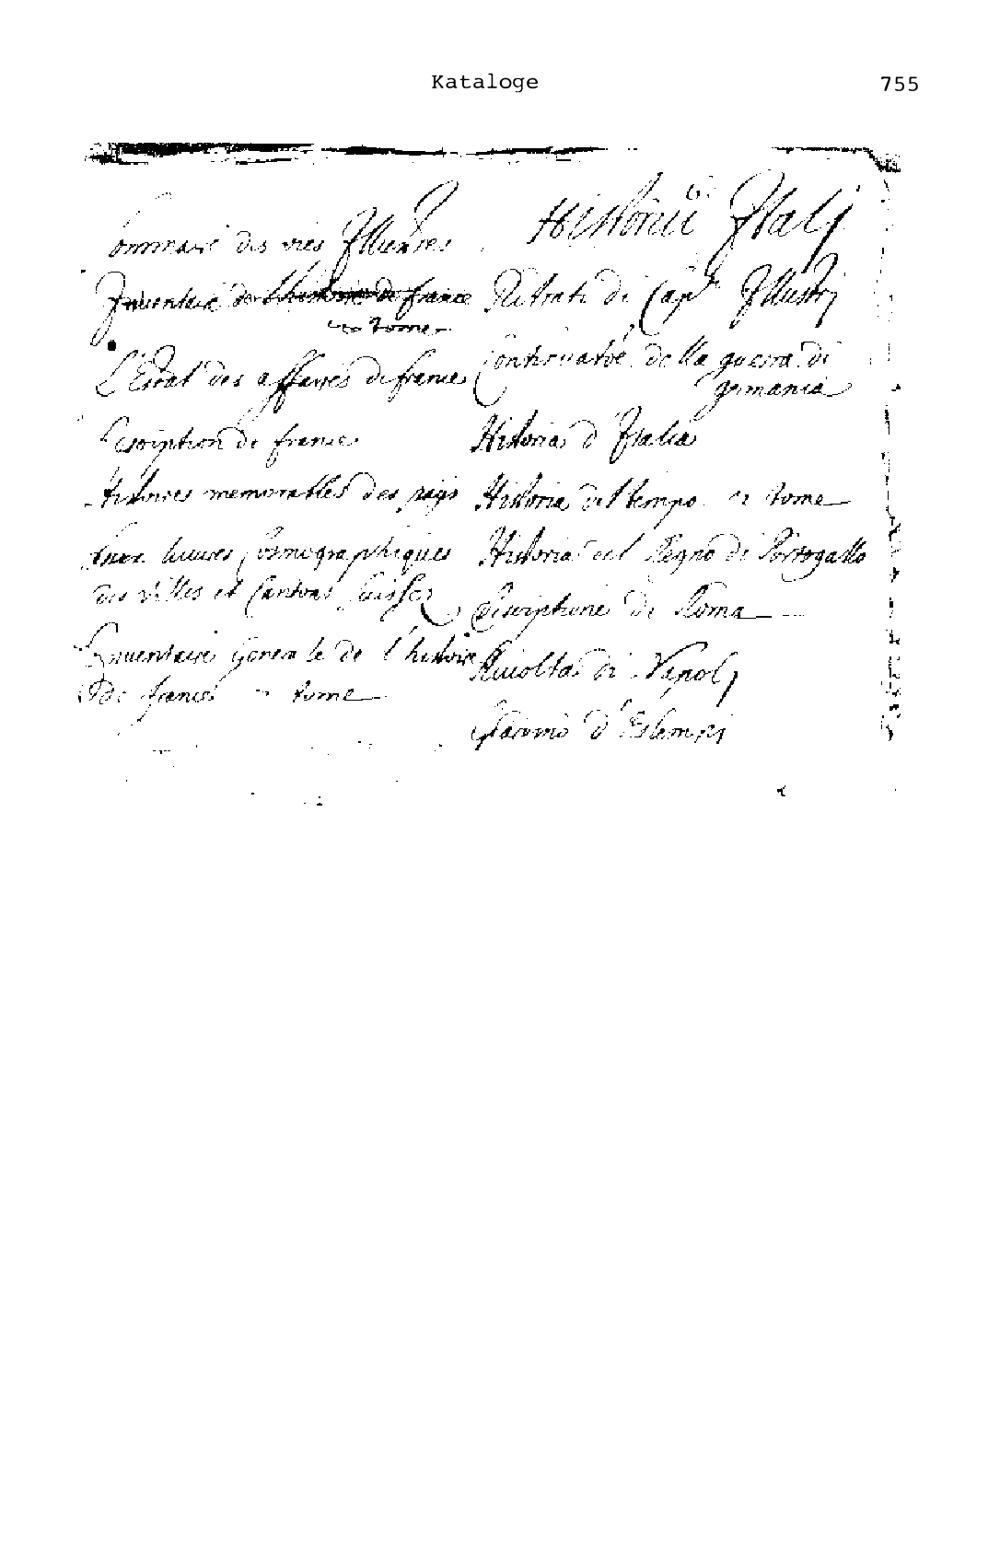 Kataloge 755
Sommaire des vies Illustres
Inventaire de l'histoire de france
tome
L'Estat des affaires de france
Description de france
Histoires memorables des pays
livres Cosmographiques
des villes et Cantons Suisses
Inventaire Generale de l'histoire
De france tome
Historici Italj
Ritrati di Cap.ⁱ Illustrj
della guerra di
germania
Historia d'Italia
Historia del tempo 2 tome
Historia del Regno di Portogallo
Discriptione di Roma
Raccolta di Napolj